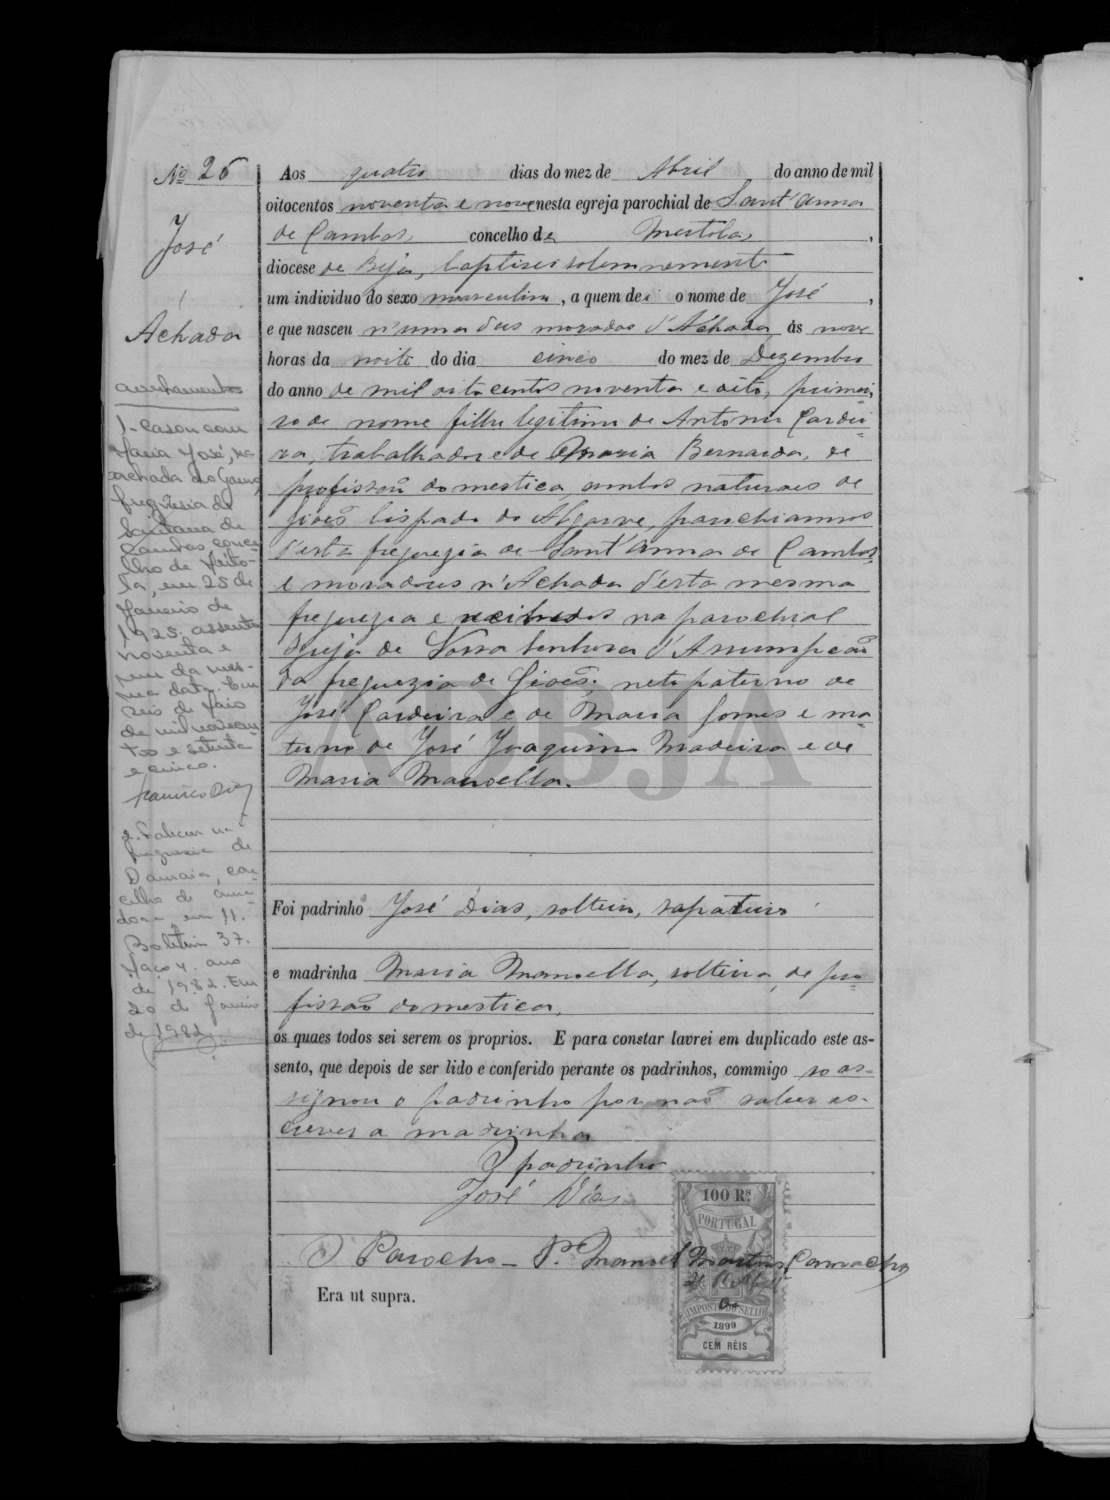 Nº 26
José
Achada
averbamentos
1- Casou com
Maria José, na
freguesia de
Santana de
Cambas conce-
lho de Mérto-
la, em 25 de
Janeiro de
1925. assento
noventa e
um da mes-
ma data. Em
seis de Maio
de mil novecen-
tos e setenta
e cinco.
Francisco
2. Faleceu na
freguesia de
Damaia, con-
celho de Ama-
dora, em 11.
Boletim 37.
Maço 4. ano
de 1982. Em
20 de Janeiro
de 1982.
Aos quatro dias do mez de Abril do anno de mil
oitocentos noventa e nove nesta egreja parochial de Sant'Anna
de Cambas, concelho de Mertola,
diocese de Beja, baptisei solemnemente
um individuo do sexo masculino, a quem dei o nome de José,
e que nasceu n'uma das moradas d'Achada ás nove
horas da noite do dia cinco do mez de Dezembro
do anno de mil oitocentos noventa e oito, primei-
ro de nome filho legitimo de Antonio Cardei-
ra, trabalhador e de Maria Bernarda, de
profissão domestica, ambos naturaes de
Giões bispado do Algarve, parochianos
d'esta freguezia de Sant'Anna de Cambas,
e moradores n'Achada d'esta mesma
freguezia e recibidos na parochial
Egreja de Nossa Senhora d'Assumpção
da freguezia de Giões; neto paterno de
José Cardeira e de Maria Gomes e ma-
terno de José Joaquim Madeira e de
Maria Manoella.
ADBJA
Foi padrinho José Dias, solteiro, sapateiro
e madrinha Maria Manoella, solteira, de pro-
fissão domestica,
os quaes todos sei serem os proprios. E para constar lavrei em duplicado este as-
sento, que depois de ser lido e conferido perante os padrinhos, commigo so as-
signou o padrinho por não saber es-
crever a madrinha
O padrinho
José Dias
O Parocho - P.e Manoel Martins Camacho
Era ut supra.
100 Rs.
PORTUGAL
IMPOSTO DO SELLO
1899
CEM RÉIS